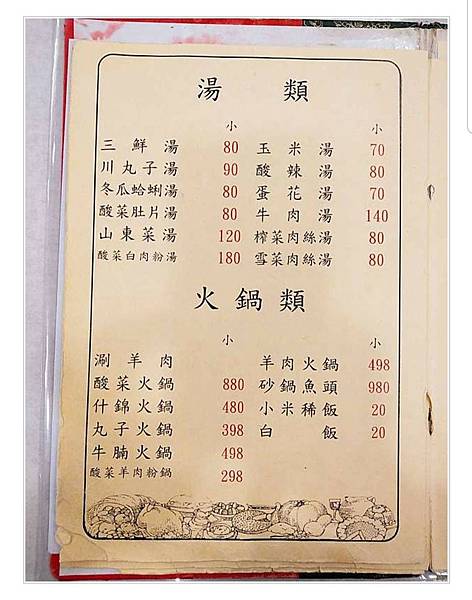 湯類
小 小
三鮮湯 80 玉米湯 70
川丸子湯 90 酸辣湯 80
冬瓜蛤蜊湯 80 蛋花湯 70
酸菜肚片湯 80 牛肉湯 140
山東菜湯 120 榨菜肉絲湯 80
酸菜白肉粉湯 180 雪菜肉絲湯 80
火鍋類
小 小
涮羊肉 羊肉火鍋 498
酸菜火鍋 880 砂鍋魚頭 980
什錦火鍋 480 小米稀飯 20
丸子火鍋 398 白飯 20
牛腩火鍋 498
酸菜羊肉粉鍋 298